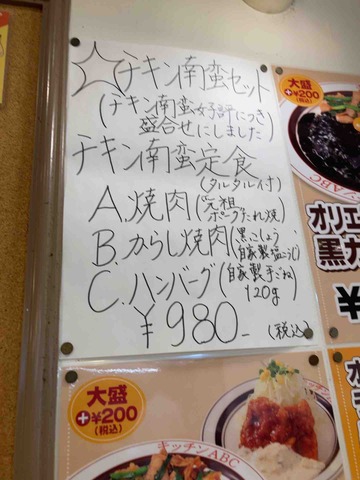 ☆チキン南蛮セット
(チキン南蛮好評につき
盛合せにしました)
チキン南蛮定食
(タルタル付)
A.焼肉(元祖
ポークたれ焼)
B.からし焼肉(黒こしょう
自家製塩こうじ)
C.ハンバーグ(自家製手ごね
120g)
¥980-
(税込)
大盛
+¥200
(税込)
ABC
オリエ
黒カ
¥
大盛
+¥200
(税込)
キッチンABC